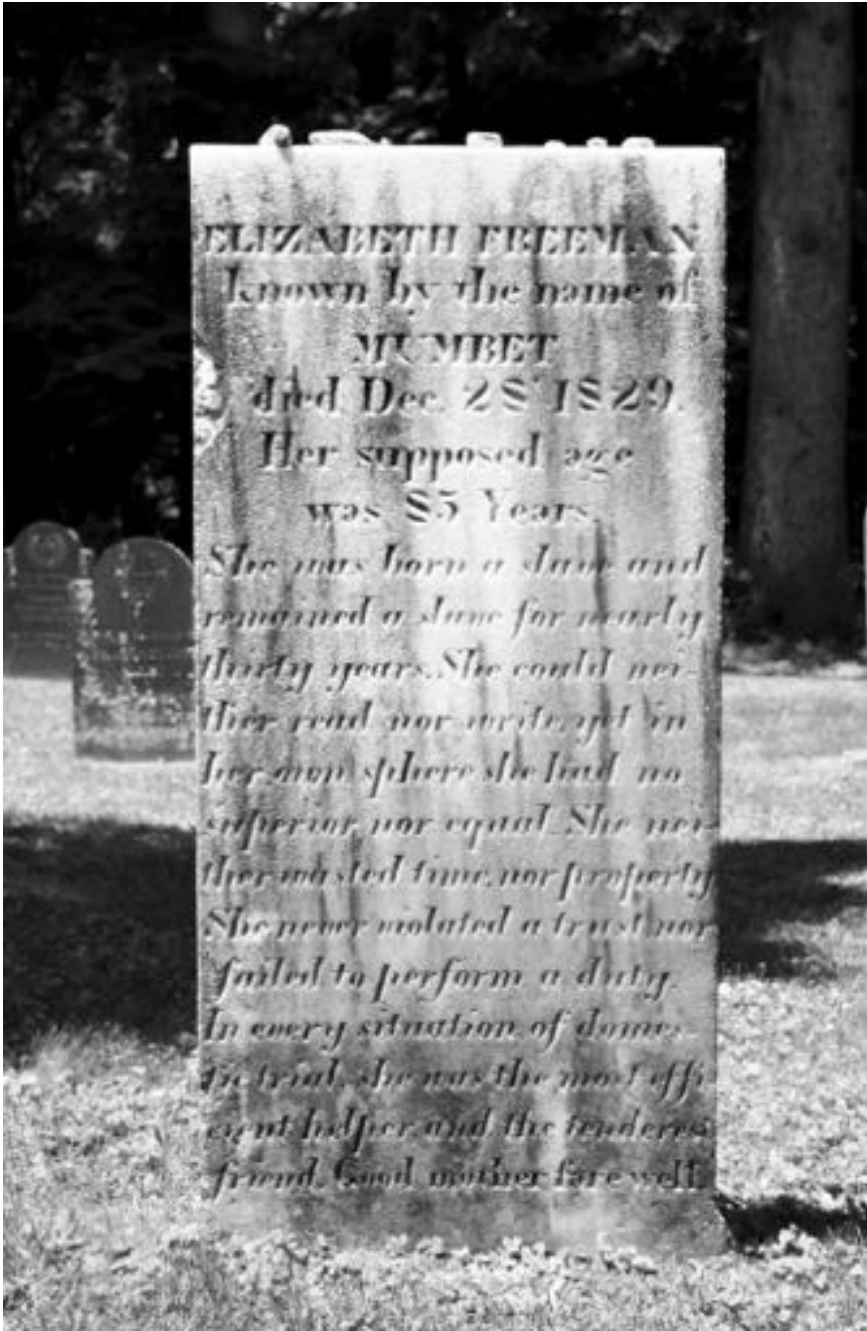 ELIZABETH FREEMAN
known by the name of
MUMBET
died Dec. 28 1829.
Her supposed age
was 85 Years.
She was born a slave and
remained a slave for nearly
thirty years. She could nei-
ther read nor write, yet in
her own sphere she had no
superior nor equal. She nei-
ther wasted time, nor property.
She never violated a trust nor
failed to perform a duty.
In every situation of domes-
tic trial, she was the most effi-
cient helper, and the tenderest
friend. Good mother farewell.